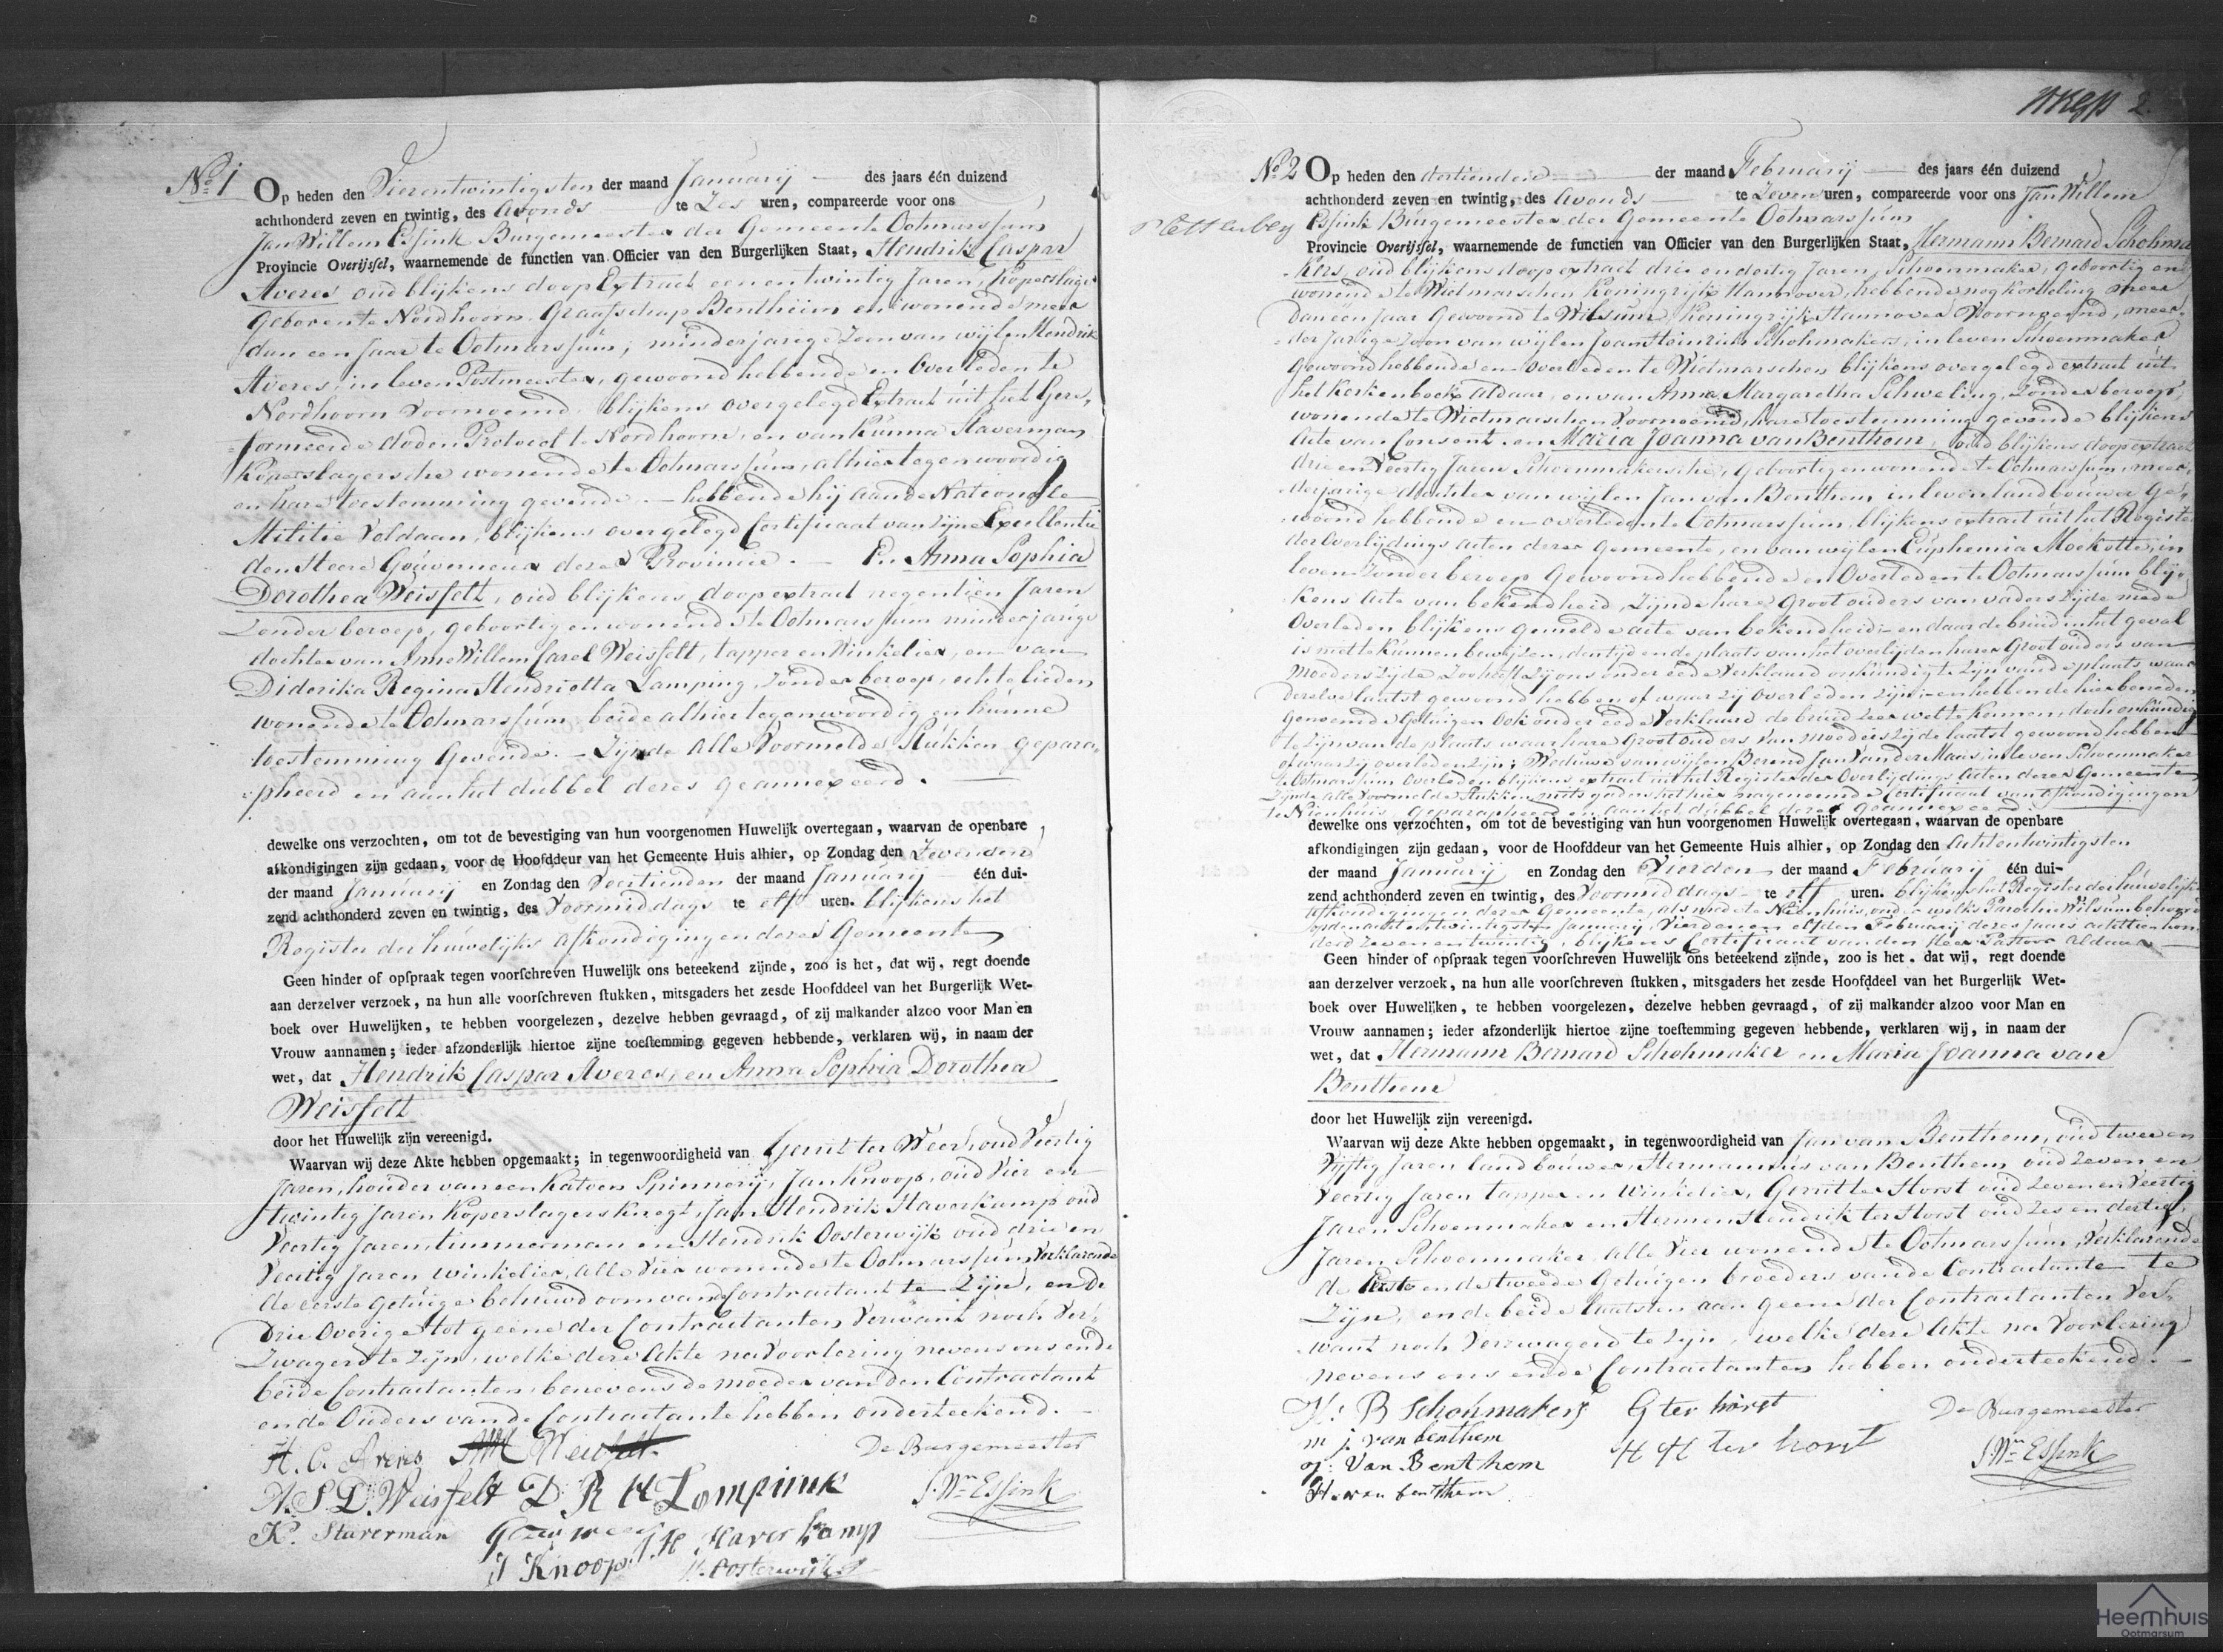 No 1 Op heden den Vierentwintigsten der maand Januarij des jaars één duizend
achthonderd zeven en twintig, des Avonds te Zes uren, compareerde voor ons
Jan Willem Essink Burgemeester der Gemeente Ootmarssum
Provincie Overijssel, waarnemende de functien van Officier van den Burgerlijken Staat, Hendrik Caspar
Averes oud blijkens doop Extract eenentwintig Jaren, Koperslager
Geboren te Nordhoorn Graafschap Bentheim en wonende meer
dan een Jaar te Ootmarssum, minderjarige Zoon van wijlen Hendrik
Averes, in leven Postmeester, gewoond hebbende en Overleden te
Nordhoorn Voornoemd, blijkens overgelegd Extract uit het Gere-
formeerde doden Protocol te Nordhoorn, en van Kunna Staverman
Koperslagersche wonende te Ootmarssum, alhier tegenwoordig
en hare toestemming gevende. - hebbende hij aan de Nationale
Militie Voldaan, blijkens overgelegd Certificaat van Zijne Excellentie
den Heere Gouverneur dezer Provincie. - En Anna Sophia
Dorothea Weisfelt, oud blijkens doopextract negentien Jaren
Zonder beroep, geboortig en wonende te Ootmarssum minderjarige
dochter van Anne Willem Carel Weisfelt, tapper en Winkelier, en van
Diderika Regina Hendrietta Lamping, Zonder beroep, echtelieden
wonende te Ootmarssum, beide alhier tegenwoordig en hunne
toestemming Gevende. - Zijnde Alle Voormelde Stukken gepara-
pheerd en aan het dubbel dezes geannexeerd.
dewelke ons verzochten, om tot de bevestiging van hun voorgenomen Huwelijk overtegaan, waarvan de openbare
afkondigingen zijn gedaan, voor de Hoofddeur van het Gemeente Huis alhier, op Zondag den Zevenden
der maand Januarij en Zondag den Veertienden der maand Januarij één dui-
zend achthonderd zeven en twintig, des Voormiddags te elf uren. blijkens het
Register der huwelijks afkondigingen dezer Gemeente
Geen hinder of opspraak tegen voorschreven Huwelijk ons beteekend zijnde, zoo is het, dat wij, regt doende
aan derzelver verzoek, na hun alle voorschreven stukken, mitsgaders het zesde Hoofddeel van het Burgerlijk Wet-
boek over Huwelijken, te hebben voorgelezen, dezelve hebben gevraagd, of zij malkander alzoo voor Man en
Vrouw aannamen; ieder afzonderlijk hiertoe zijne toestemming gegeven hebbende, verklaren wij, in naam der
wet, dat Hendrik Caspar Averes, en Anna Sophia Dorothea
Weisfelt
door het Huwelijk zijn vereenigd.
Waarvan wij deze Akte hebben opgemaakt; in tegenwoordigheid van Gerrit ter Weer, oud Veertig
Jaren, houder van een Katoen Spinnerij, Jan Knoop, oud Vier en
twintig Jaren Koperslagers Knegt, Jan Hendrik Haverkamp oud
Veertig Jaren, timmerman en Hendrik Oosterwijk oud drie en
Veertig Jaren winkelier, alle Vier wonende te Ootmarssum, Verklarende
de eerste Getuige behuwd oom van Contractant te Zijn, en De
Drie Overige tot geene der Contractanten Verwant noch Ver-
Zwagerd te Zijn, welke deze Akte na Voorlezing nevens ons en de
beide Contractanten, benevens de moeder van den Contractant
en de Ouders van de Contractante hebben onderteekend. -
H. C. Averes Weisfelt De Burgemeester
A. S. D. Weisfelt D R H Lompink J. Wm Essink
K. Staverman J. H Haverkamp
J Knoop H. Oosterwijk
2
No 2 Op heden den dertienden der maand Februarij des jaars één duizend
achthonderd zeven en twintig, des Avonds te Zeven uren, compareerde voor ons Jan Willem
Essink Burgemeester der Gemeente Ootmarssum
Provincie Overijssel, waarnemende de functien van Officier van den Burgerlijken Staat, Hermann Bernard Schohma
kers, oud blijkens doop extract drie en dertig Jaren, Schoenmaker, geboortig en
wonende te Wietmarschen Koningrijk Hannover, hebbende nog kortelings meer
Dan een Jaar Gewoond te Wilsum, Koningrijk Hannover Voornoemd, meer-
derjarige Zoon van wijlen Joan Heinrich Schohmakers, in leven Schoenmaker
Gewoond hebbende en overleden te Wietmarschen blijkens overgelegd extract uit
het Kerkenboek aldaar, en van Anna Margaretha Schweling, Zonder beroep,
wonende te Wietmarschen Voornoemd, hare toestemming gevende blijkens
Acte van Consent. en Maria Joanna van Benthem, oud blijkens doop extract
drie en Veertig Jaren Schoenmakersche, Geboortig en wonende te Ootmarssum, meer-
derjarige dochter van wijlen Jan van Benthem in leven landbouwer Ge-
woond hebbende en overleden te Ootmarssum, blijkens extract uit het Register
der Overlijdings acten dezer Gemeente, en van wijlen Euphemia Mockotte, in
leven Zonder beroep Gewoond hebbende en Overleden te Ootmarssum blij-
kens Acte van bekendheid, Zijnde hare Groot ouders van vaders Zijde mede
Overleden blijkens Gemelde acte van bekendheid - en daar de bruid in het geval
is niet te kunnen bewijzen, den tijd en de plaats van het overlijden harer Groot ouders van
Moeders Zijde Zoo heeft Zij ons onder eede Verklaard onkundig te Zijn van de plaats waar
dezelve laatst gewoond hebben, of waar Zij overleden Zijn; - en hebbende hier beneden
Genoemde Getuigen Ook onder eede Verklaard de bruid Zeer wel te Kennen, doch onkundig
te Zijn van de plaats waar hare Groot ouders van moeders Zijde laatst gewoond hebben
of waar Zij overleden Zijn; Weduwe van wijlen Berend Jan van der Maas, in leven Schoenmaker
te Ootmarssum Overleden blijkens extract uit het Register der Overlijdings Acten dezer Gemeente
Zijnde alle Voormelde Stukken mitsgaders het hier nagenoemde Certificaat van afkondigingen
te Nienhuis Geparapheerd en aan het dubbel dezes Geannexeerd
dewelke ons verzochten, om tot de bevestiging van hun voorgenomen Huwelijk overtegaan, waarvan de openbare
afkondigingen zijn gedaan, voor de Hoofddeur van het Gemeente Huis alhier, op Zondag den Achtentwintigsten
der maand Januarij en Zondag den Vierden der maand Februarij één dui-
zend achthonderd zeven en twintig, des Voormiddags te elf uren. blijkens het Register der huwelijks
afkondigingen dezer Gemeente, als mede te Nienhuis, onder welks Parochie Wilsum behoord
op den achtentwintigsten Januarij, Vierden en elfden Februarij dezes Jaars achttien hon-
derd Zeven en twintig, blijkens Certificaat van den Heer Pastoor Aldaar
Geen hinder of opspraak tegen voorschreven Huwelijk ons beteekend zijnde, zoo is het, dat wij, regt doende
aan derzelver verzoek, na hun alle voorschreven stukken, mitsgaders het zesde Hoofddeel van het Burgerlijk Wet-
boek over Huwelijken, te hebben voorgelezen, dezelve hebben gevraagd, of zij malkander alzoo voor Man en
Vrouw aannamen; ieder afzonderlijk hiertoe zijne toestemming gegeven hebbende, verklaren wij, in naam der
wet, dat Hermann Bernard Schohmaker en Maria Joanna van
Benthem
door het Huwelijk zijn vereenigd.
Waarvan wij deze Akte hebben opgemaakt, in tegenwoordigheid van Jan van Benthem, oud twee en
Vijftig Jaren landbouwer, Hermannus van Benthem oud Zeven en
Veertig Jaren tapper en Winkelier, Gerrit ter Horst oud Zeven en Veertig
Jaren Schoenmaker en Hermen Hendrik ter Horst oud Zes en dertig
Jaren Schoenmaker Alle Vier wonende te Ootmarssum, Verklarende
de Eerste en de tweede Getuigen broeders van de Contractante te
Zijn, en de beide laatsten aan geene der Contractanten Ver-
want noch Verzwagerd te zijn, welke deze Akte na Voorlezing
nevens ons en de Contractanten hebben onderteekend. -
H: B Schohmakers G ter horst De Burgemeester
m j. van benthem H H ter horst J. Wm Essink
J: Van Benthem
H. van benthem
Heemhuis
Ootmarsum